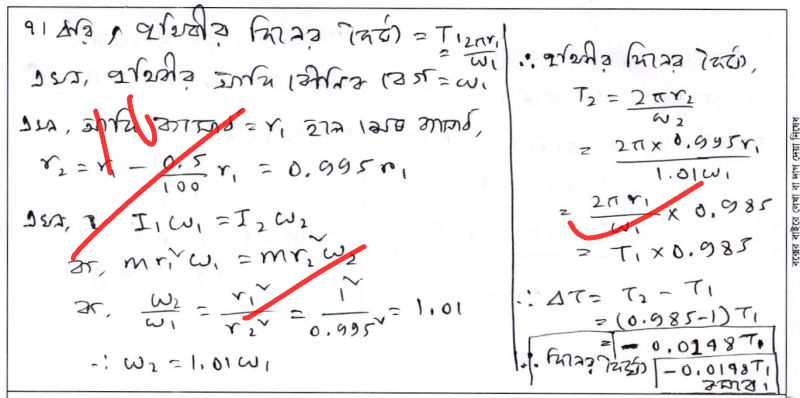 ৭। ধরি, পৃথিবীর দিনের দৈর্ঘ্য = T₁ = 2πr₁/ω₁
এখন, পৃথিবীর আদি কৌনিক বেগ = ω₁
এখন, আদি ব্যাসার্ধ = r₁ হলে শেষ ব্যাসার্ধ,
r₂ = r₁ − 0.5/100 r₁ = 0.995 r₁
এখন, I₁ω₁ = I₂ω₂
বা, mr₁²ω₁ = mr₂²ω₂
বা, ω₂/ω₁ = r₁²/r₂² = 1²/0.995² = 1.01
∴ ω₂ = 1.01ω₁
10
∴ পৃথিবীর দিনের দৈর্ঘ্য,
T₂ = 2πr₂/ω₂
= 2π × 0.995r₁/1.01ω₁
= 2πr₁/ω₁ × 0.985
= T₁ × 0.985
∴ ΔT = T₂ − T₁
= (0.985−1)T₁
= − 0.0148 T₁
∴ দিনের দৈর্ঘ্য −0.0148T₁
কমবে।
বক্সের বাইরে লেখা বা দাগ দেয়া নিষেধ